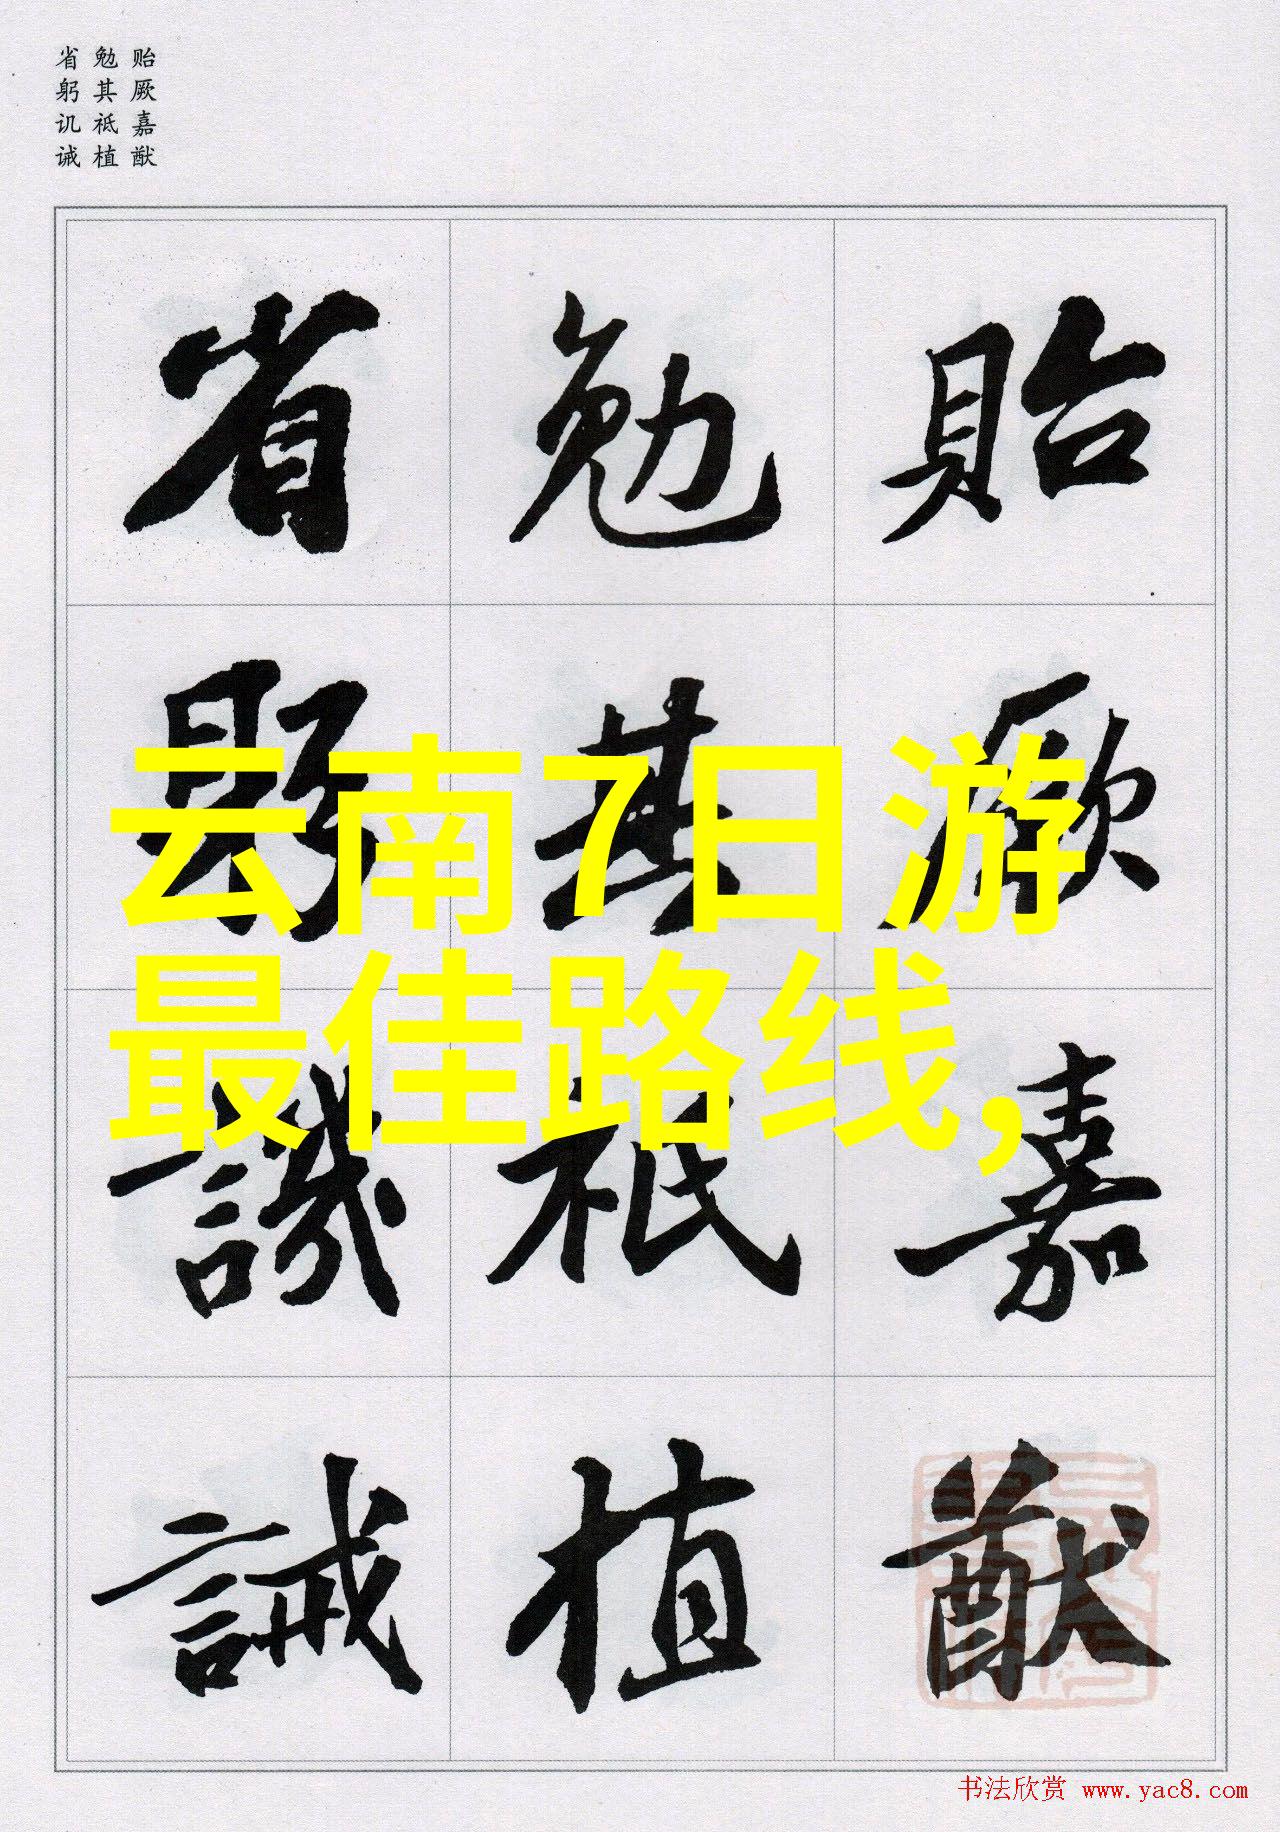 贻厥嘉猷
勉其祗植
省躬讥诫
貽厥嘉猷
勉其祗植
省躬譏誡
云南7日游
最佳路线,
书法欣赏 www.yac8.com